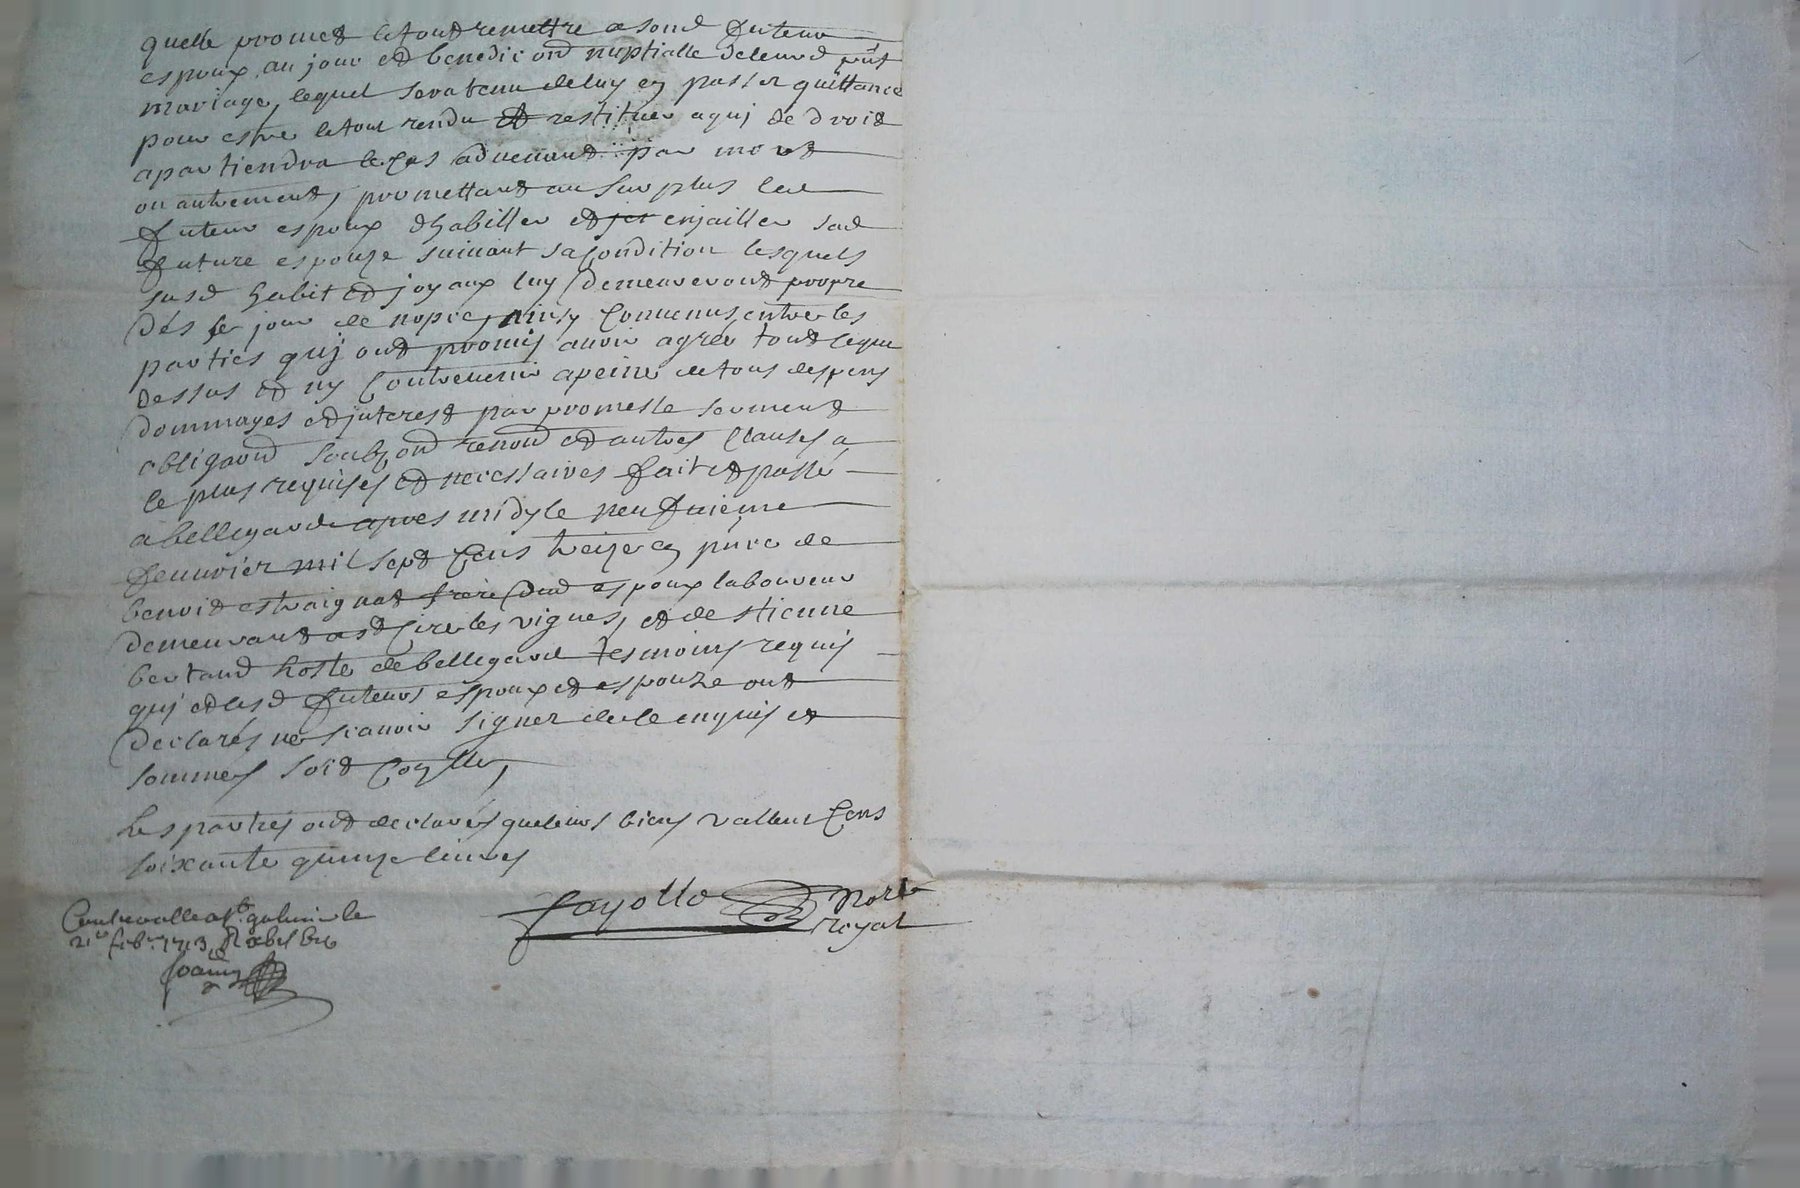 quelle promet le tout remettre a sond futeur
espoux, au jour et benediction nuptialle de leurd pnt
mariage, lequel sera tenu de luy en passer quittance
pour estre le tout rendu et restituer a quj de droit
apartiendra le cas advenant par mort
ou autrement, promettant au surplus led
futeur espoux d'habiller et enjailler sad
future espouze suivant sa condition lesquels
susd habit et joyaux luy demeureront propre
des le jour de nopce, ainsy convenus entre les
parties quj ont promis avoir agréé tout ce que
dessus et ny contrevenir a peine de tous despens
dommages et interest par promesse serment
obligaond soubzond renond et autres clauses a
ce plus requises et necessaires fait et passé
a bellegarde apres midy le neufvieme
febvrier mil sept cens treize en pnce de
benoit estraignat frere dud espoux laboureur
demeurant a st Cire les vignes, et de stienne
bertand hoste de bellegarde tesmoins requis
quj et lesd futeurs espoux et espouze ont
declarés ne scavoir signer de ce enquis et
sommés soit conllé,
Les parties ont declarés que leurs biens vallent cens
soixante quinze livres
Fayolle Nore
royal
Controolle a st galmier le
21e feb. 1713